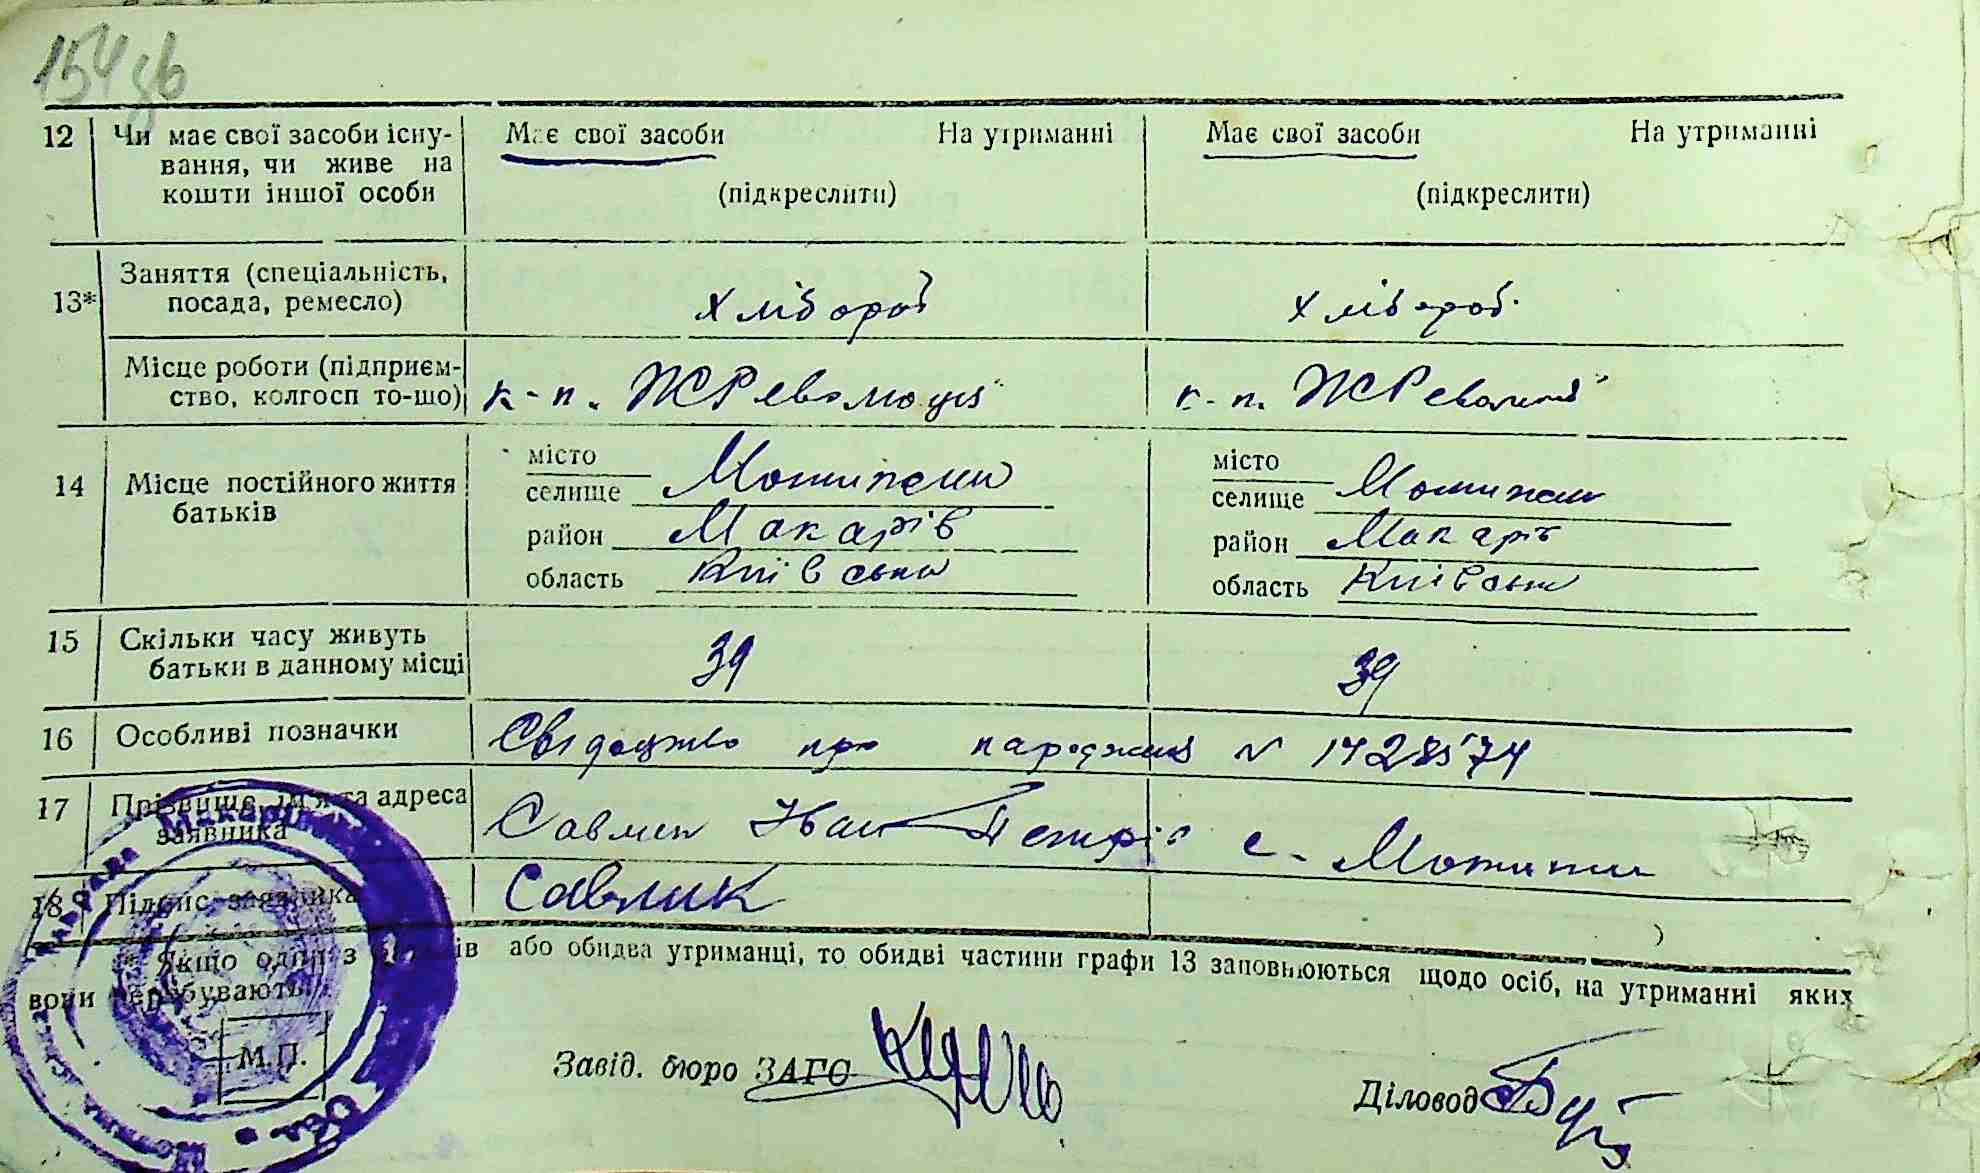 154 зв
12 Чи має свої засоби існу- Має свої засоби На утриманні Має свої засоби На утриманні
вання, чи живе на
кошти іншої особи (підкреслити) (підкреслити)
13* Заняття (спеціальність,
посада, ремесло) хлібороб хлібороб
Місце роботи (підприєм-
ство, колгосп то-що) к-п. ЖРеволюція к-п. ЖРеволюція
14 Місце постійного життя
батьків
місто місто
селище Мотижин селище Мотижин
район Макарів район Макарів
область Київська область Київська
15 Скільки часу живуть
батьки в данному місці 39 39
16 Особливі позначки Свідоцтво про народження N 1428574
17 Прізвище, ім'я та адреса
заявника Савлик Іван Петрів с. Мотижин
18 Підпис заявника Савлик
* Якщо один з батьків або обидва утриманці, то обидві частини графи 13 заповнюються щодо осіб, на утриманні яких
вони перебувають.
М.П. Завід. бюро ЗАГС Діловод